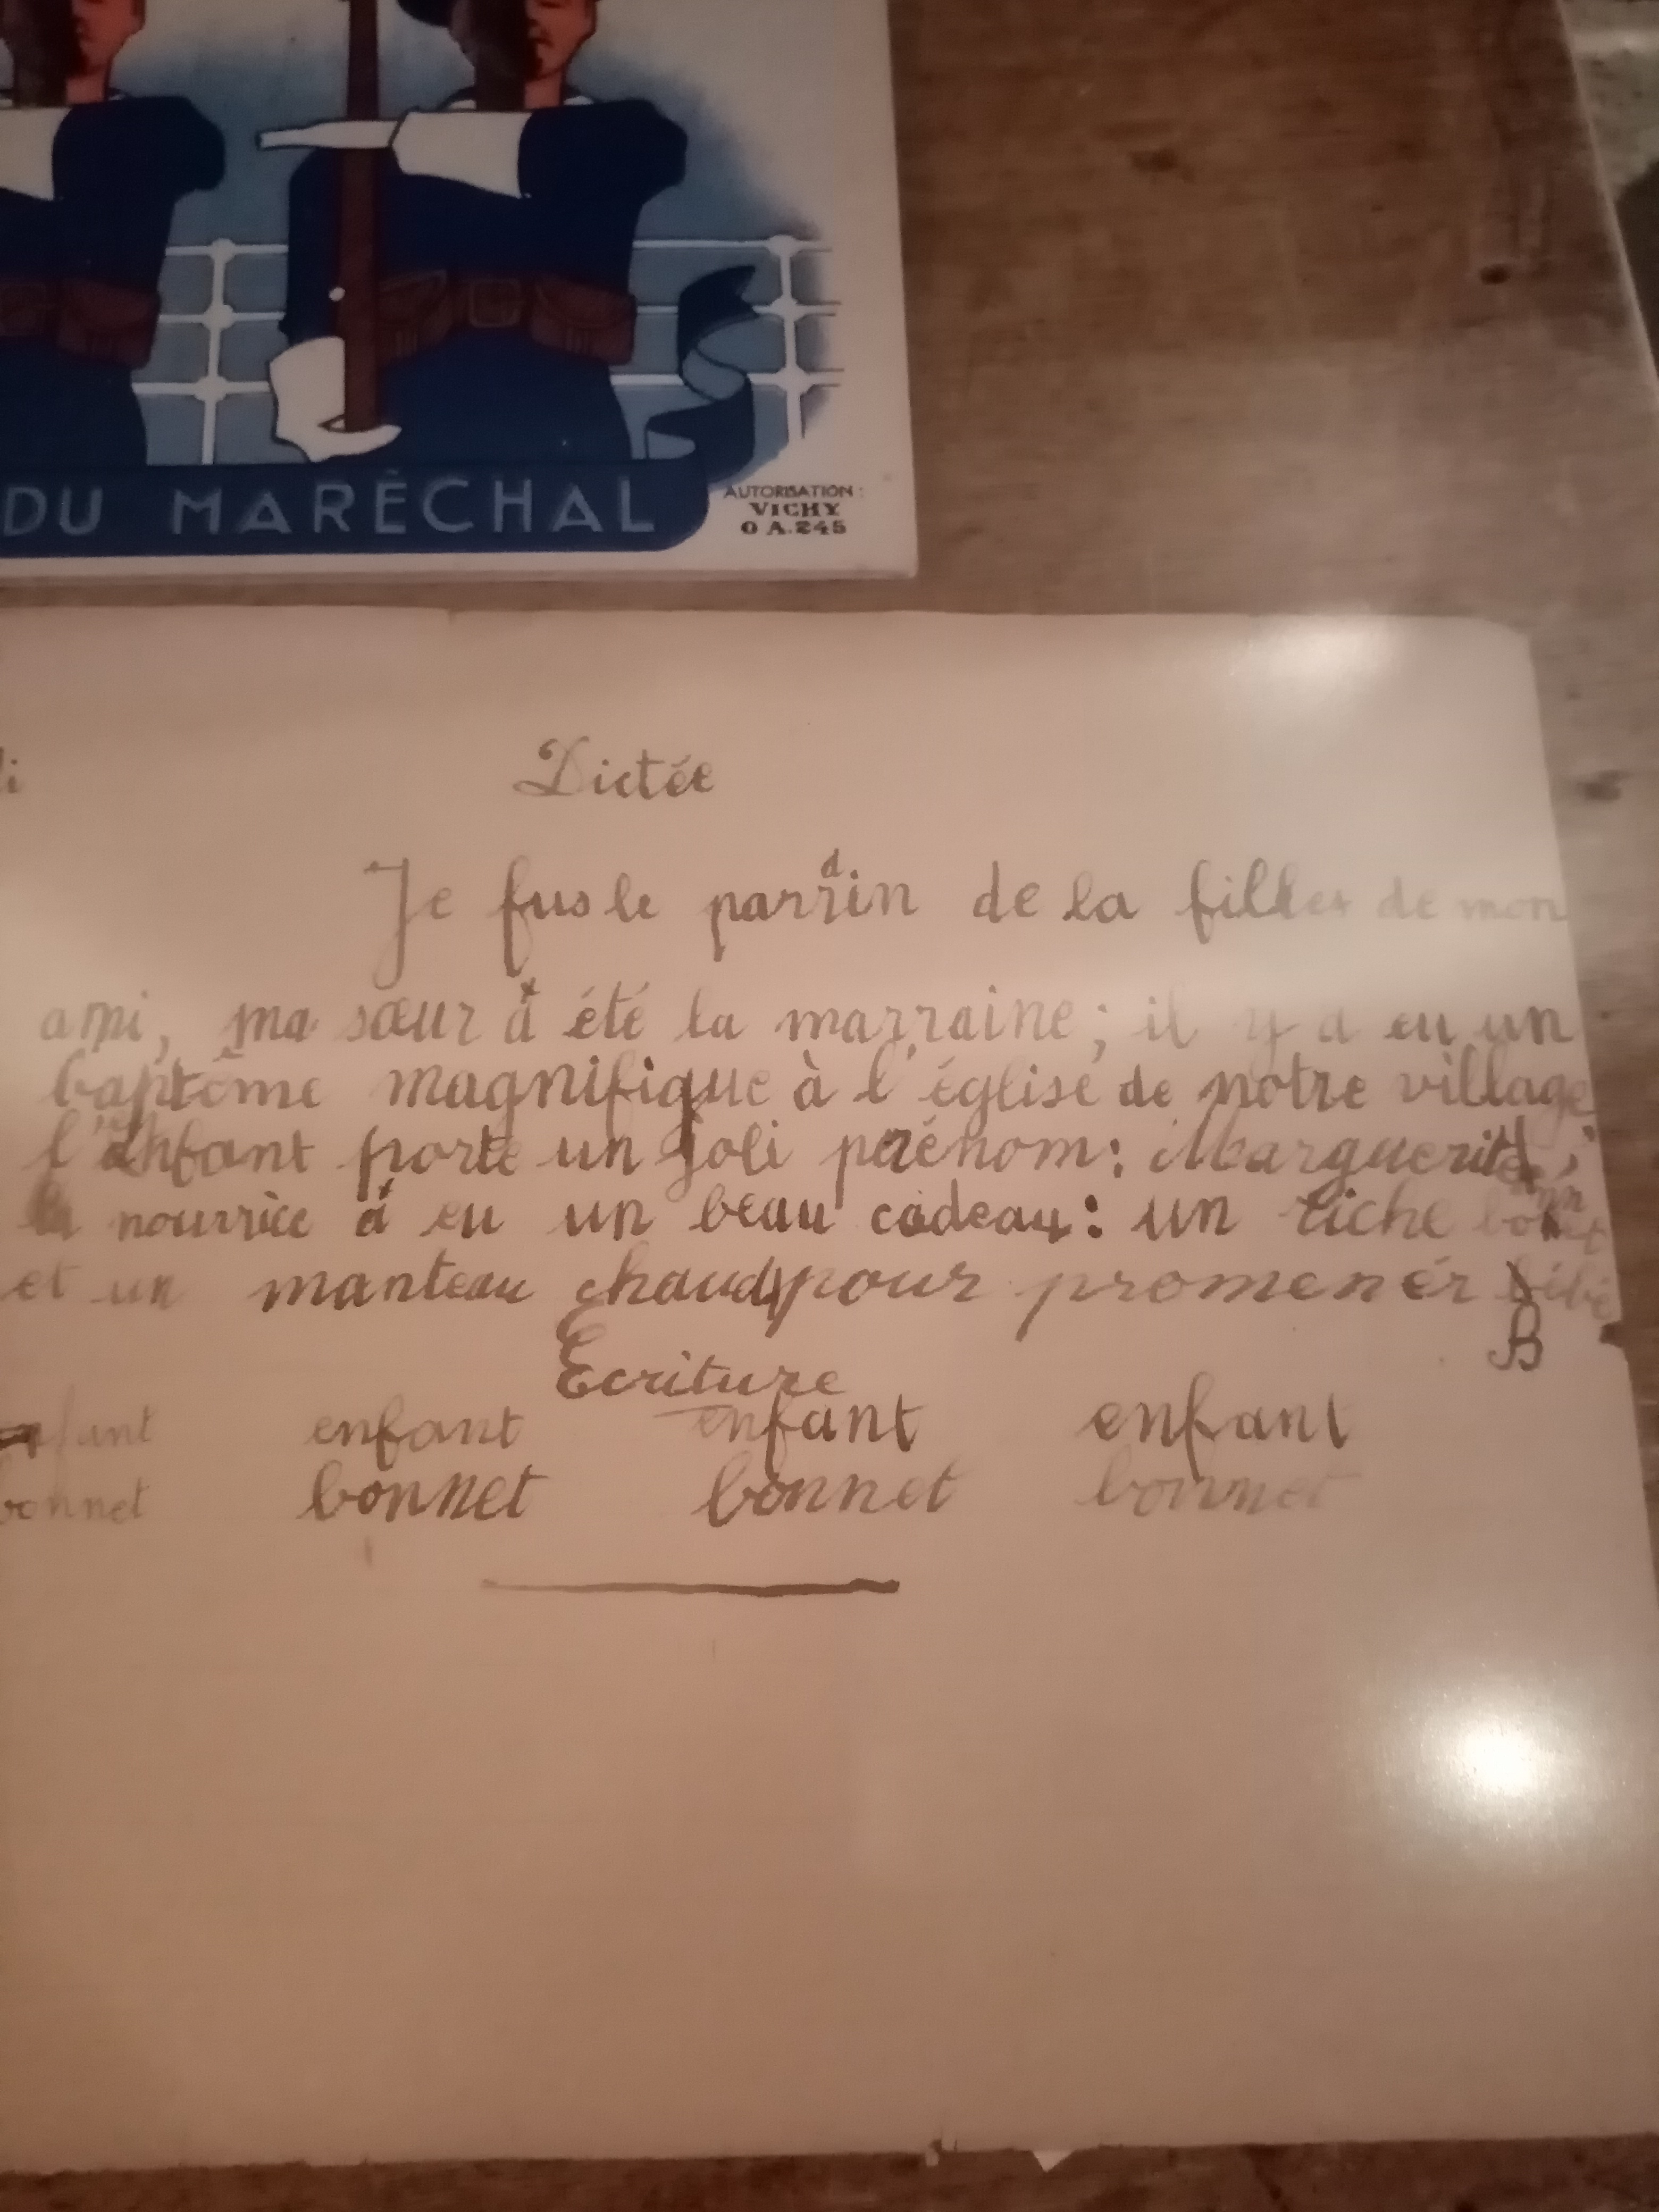 DU MARÉCHAL
AUTORISATION :
VICHY
O A.245
Dictée
Je fus le parrain de la fille de mon
ami, ma sœur a été la marraine ; il y a eu un
baptême magnifique à l'église de notre village
l'enfant porte un joli prénom : Marguerite ;
la nourrice a eu un beau cadeau : un riche bonnet
et un manteau chaud pour promener bébé
B
Ecriture
enfant enfant enfant enfant
bonnet bonnet bonnet bonnet